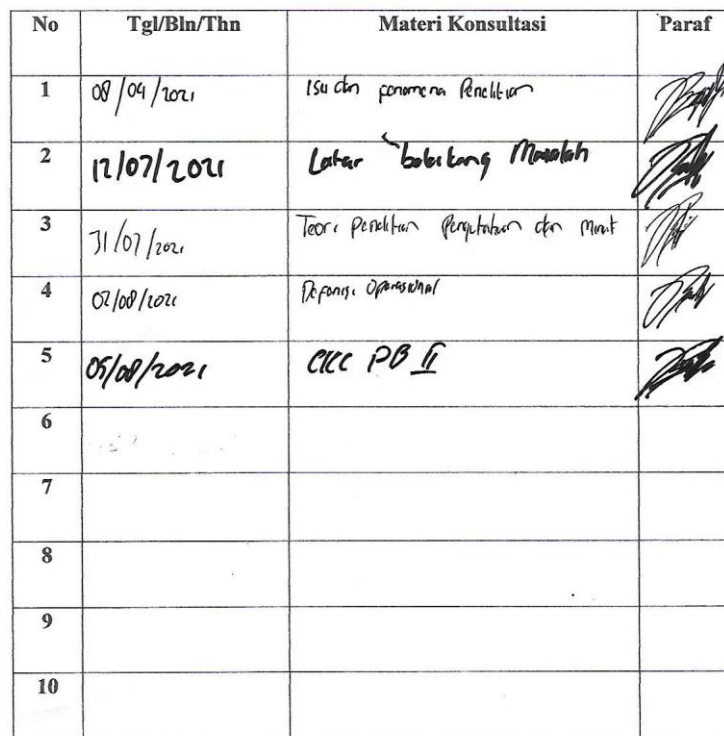 No Tgl/Bln/Thn Materi Konsultasi Paraf
1 08/04/2021 Isu dan fenomena Penelitian
2 12/07/2021 Latar belakang Masalah
3 31/07/2021 Teori penelitian Pengetahuan dan Minat
4 02/08/2021 Defenisi Operasional
5 05/08/2021 PB II
6
7
8
9
10